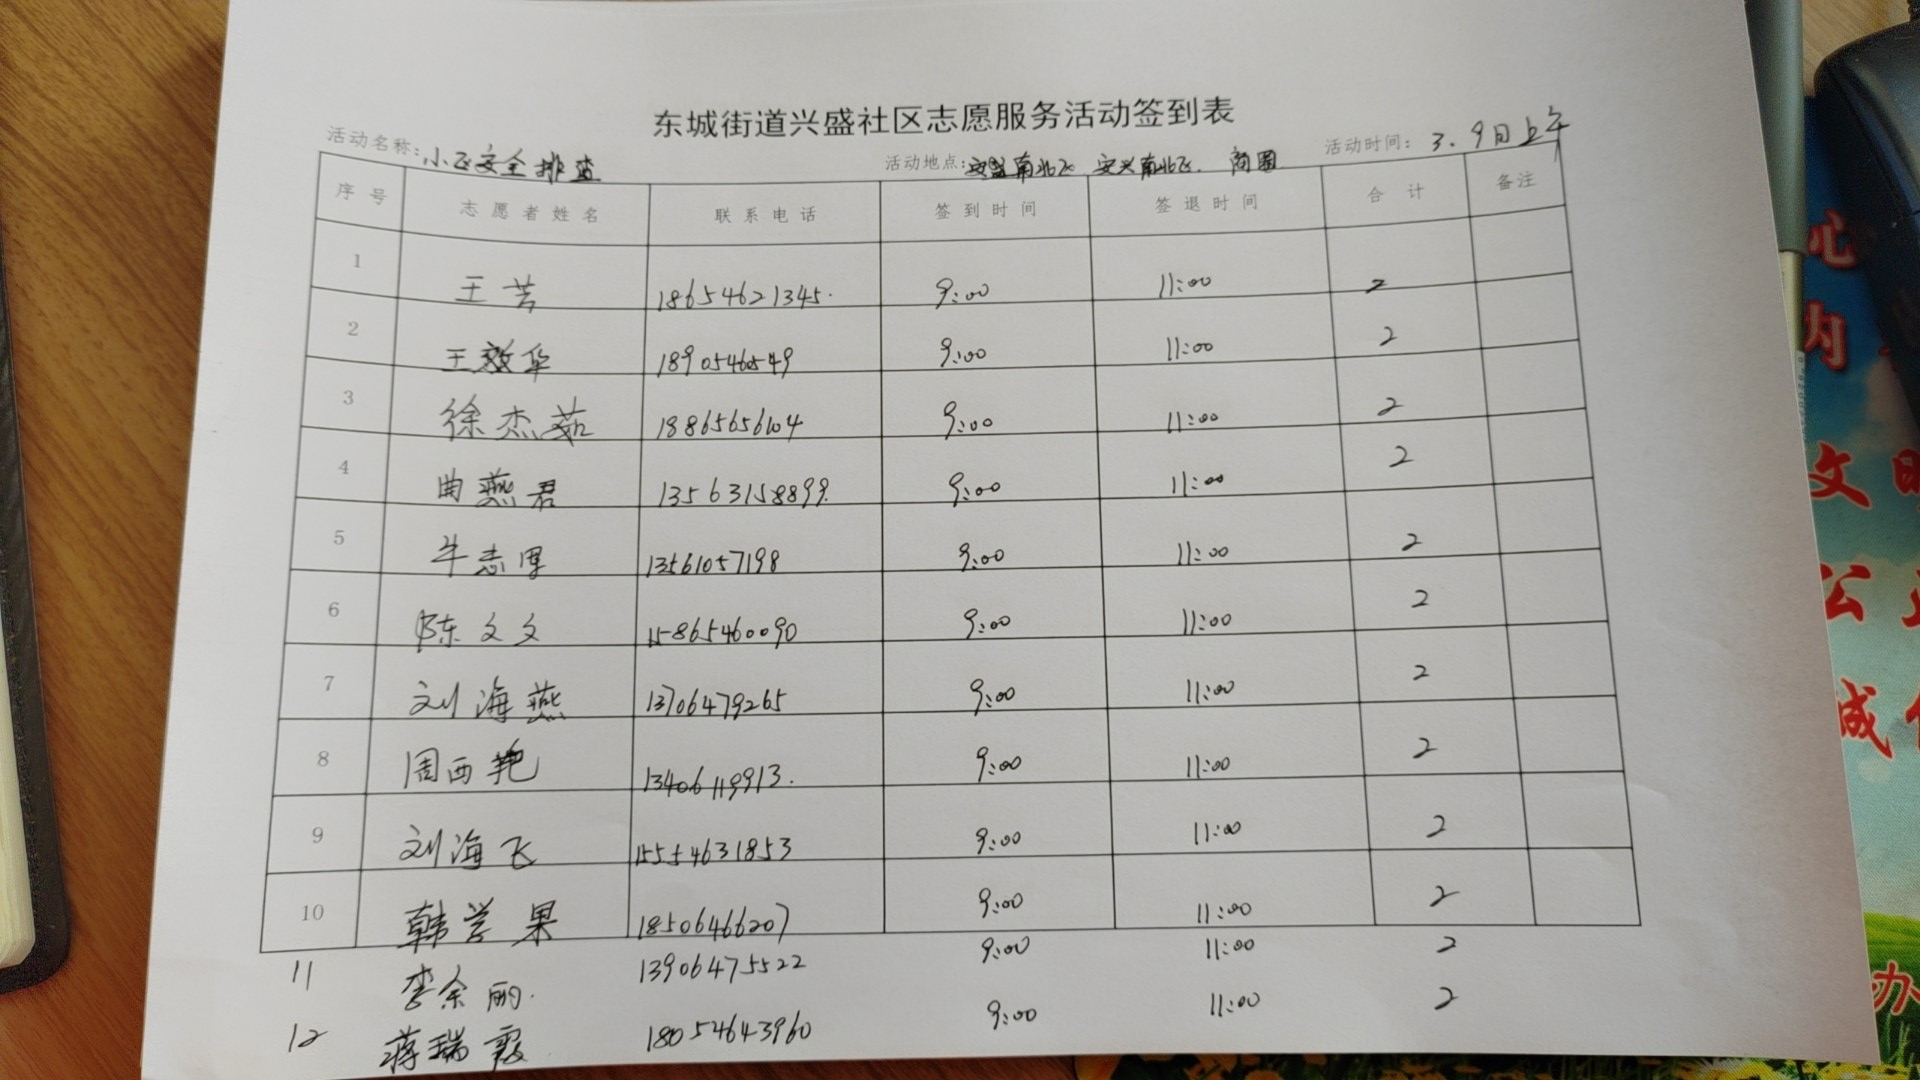 东城街道兴盛社区志愿服务活动签到表
活动名称: 小区安全排查 活动地点: 安盛南北区、安兴南北区、商圈 活动时间: 3.9日上午
序号 志愿者姓名 联系电话 签到时间 签退时间 合计 备注
1 王芳 18654621345. 9:00 11:00 2
2 王效华 18905460549 9:00 11:00 2
3 徐杰茹 18865656104 9:00 11:00 2
4 曲燕君 13563158899. 9:00 11:00 2
5 牛志厚 13561057198 9:00 11:00 2
6 陈文文 15865460090 9:00 11:00 2
7 刘海燕 13706479265 9:00 11:00 2
8 周西艳 13406119913. 9:00 11:00 2
9 刘海飞 15554631853 9:00 11:00 2
10 韩学果 18506466207 9:00 11:00 2
11 李余丽. 13906475522 9:00 11:00 2
12 蒋瑞霞 18054643960 9:00 11:00 2
沁
内
文明
公
诚信
办